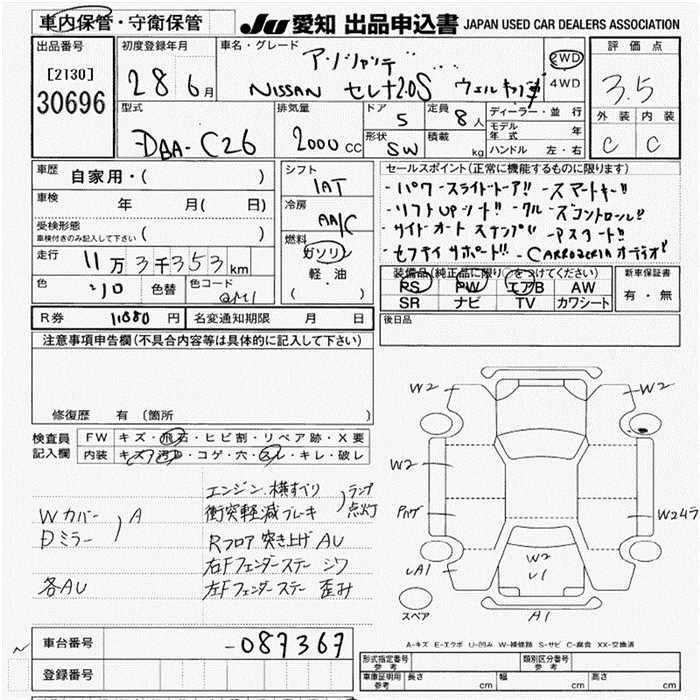 車内保管・守衛保管
JU 愛知 出品申込書 JAPAN USED CAR DEALERS ASSOCIATION
出品番号
[2130]
30696
初度登録年月
28 6月
車名・グレード
NISSAN セレナ2.0S
2WD
4WD
評価点
3.5
外装 内装
C C
型式
DBA-C26
排気量
2000 CC
ドア
5
定員
8人
形状
SW
積載
kg
ディーラー・並行
モデル年式 年
ハンドル 左・右
車歴
自家用・( )
車検
年 月( 日)
受検形態
車検付きのみ記入して下さい ( )
走行
11万3千353km
色
色替
色コード
シフト
IAT
冷房
AA/C
燃料
ガソリン
軽・油
( ・ )
セールスポイント(正常に機能するものに限ります)
・パワースライドドアー!! ・スマートキー!!
・リフトUPシート!! ・クルーズコントロール!!
・サイドオートステップ!!
・CARROZZERIAオーディオ!!
装備品(純正品に限り○をつけてください)
PS PW エアB AW
SR ナビ TV カワシート
新車保証書
有・無
後日品
R券 11080円
名変通知期限 月 日
注意事項申告欄(不具合内容等は具体的に記入して下さい)
修復歴 有 〔箇所 〕
検査員記入欄
FW キズ・飛石・ヒビ割・リペア跡・X要
内装 キズ・汚れ・コゲ・穴・スレ・キレ・破レ
Wカバー
Dミラー
A
各AU
エンジン横すべり
衝突軽減ブレーキ
ランプ点灯
Rフロア突き上げAU
右Fフェンダーステー シワ
左Fフェンダーステー 歪み
W2
W2
W2
W2
U1
A1
スペア
A-キズ E-エクボ U-凹み W-補修跡 S-サビ C-腐食 XX-交換済
車台番号
-087367
登録番号
形式指定番号 参考
類別区分番号 参考
車庫証明用 参考
長さ cm
幅 cm
高さ cm